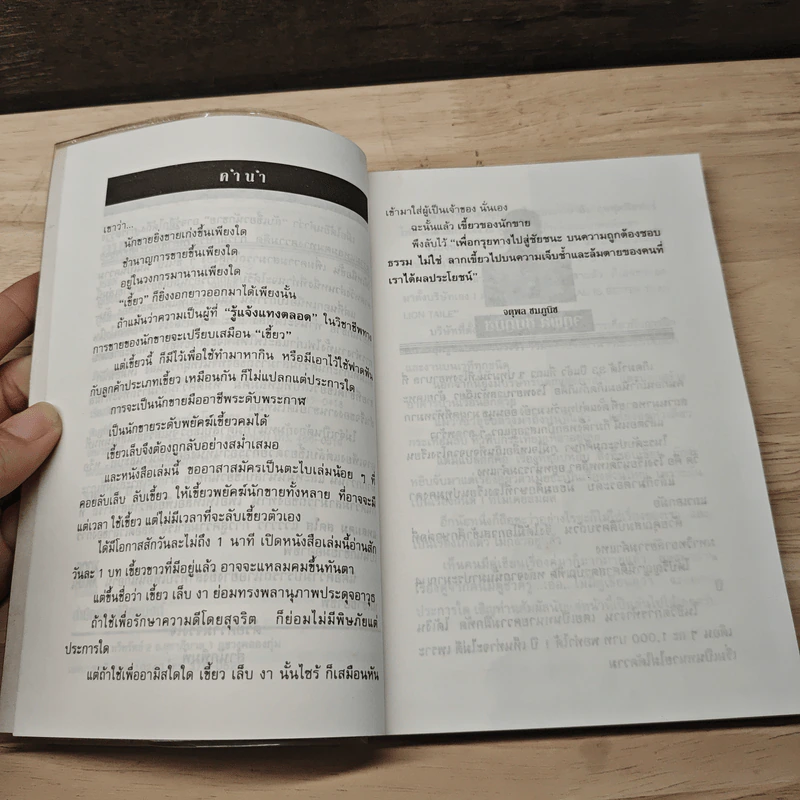 คำนำ
เขาว่า...
นักขายยิ่งขายเก่งขึ้นเพียงใด
ชำนาญการขายขึ้นเพียงใด
อยู่ในวงการมานานเพียงใด
"เขี้ยว" ก็ยิ่งงอกยาวออกมาได้เพียงนั้น
ถ้าแม้นว่าความเป็นผู้ที่ "รู้แจ้งแทงตลอด" ในวิชาชีพทาง
การขายของนักขายจะเปรียบเสมือน "เขี้ยว"
แต่เขี้ยวนี้ ก็มีไว้เพื่อใช้ทำมาหากิน หรือมีเอาไว้ใช้ฟาดฟัน
กับลูกค้าประเภทเขี้ยว เหมือนกัน ก็ไม่แปลกแต่ประการใด
การจะเป็นนักขายมืออาชีพระดับพระกาฬ
เป็นนักขายระดับพยัคฆ์เขี้ยวคมได้
เขี้ยวเล็บจึงต้องถูกลับอย่างสม่ำเสมอ
และหนังสือเล่มนี้ ขออาสาสมัครเป็นตะไบเล่มน้อย ๆ ที่
คอยลับเล็บ ลับเขี้ยว ให้เขี้ยวพยัคฆ์นักขายทั้งหลาย ที่อาจจะมี
แต่เวลา ใช้เขี้ยว แต่ไม่มีเวลาที่จะลับเขี้ยวตัวเอง
ได้มีโอกาสสักวันละไม่ถึง 1 นาที เปิดหนังสือเล่มนี้อ่านสัก
วันละ 1 บท เขี้ยวขาวที่มีอยู่แล้ว อาจจะแหลมคมขึ้นทันตา
แต่ขึ้นชื่อว่า เขี้ยว เล็บ งา ย่อมทรงพลานุภาพประดุจอาวุธ
ถ้าใช้เพื่อรักษาความดีโดยสุจริต ก็ย่อมไม่มีพิษภัยแต่
ประการใด
แต่ถ้าใช้เพื่ออามิสใดใด เขี้ยว เล็บ งา นั้นไซร้ ก็เสมือนหัน
เข้ามาใส่ผู้เป็นเจ้าของ นั่นเอง
ฉะนั้นแล้ว เขี้ยวของนักขาย
พึงลับไว้ "เพื่อกรุยทางไปสู่ชัยชนะ บนความถูกต้องชอบ
ธรรม ไม่ใช่ ลากเขี้ยวไปบนความเจ็บช้ำและล้มตายของคนที่
เราได้ผลประโยชน์"
จตุพล ชมภูนิช